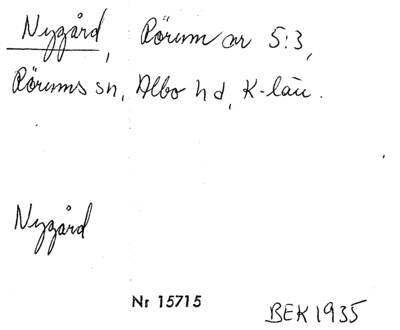 Nygård, Rörum nr 5:3,
Rörums sn, Albo hd, K-län.
Nygård
Nr 15715
BEK 1935